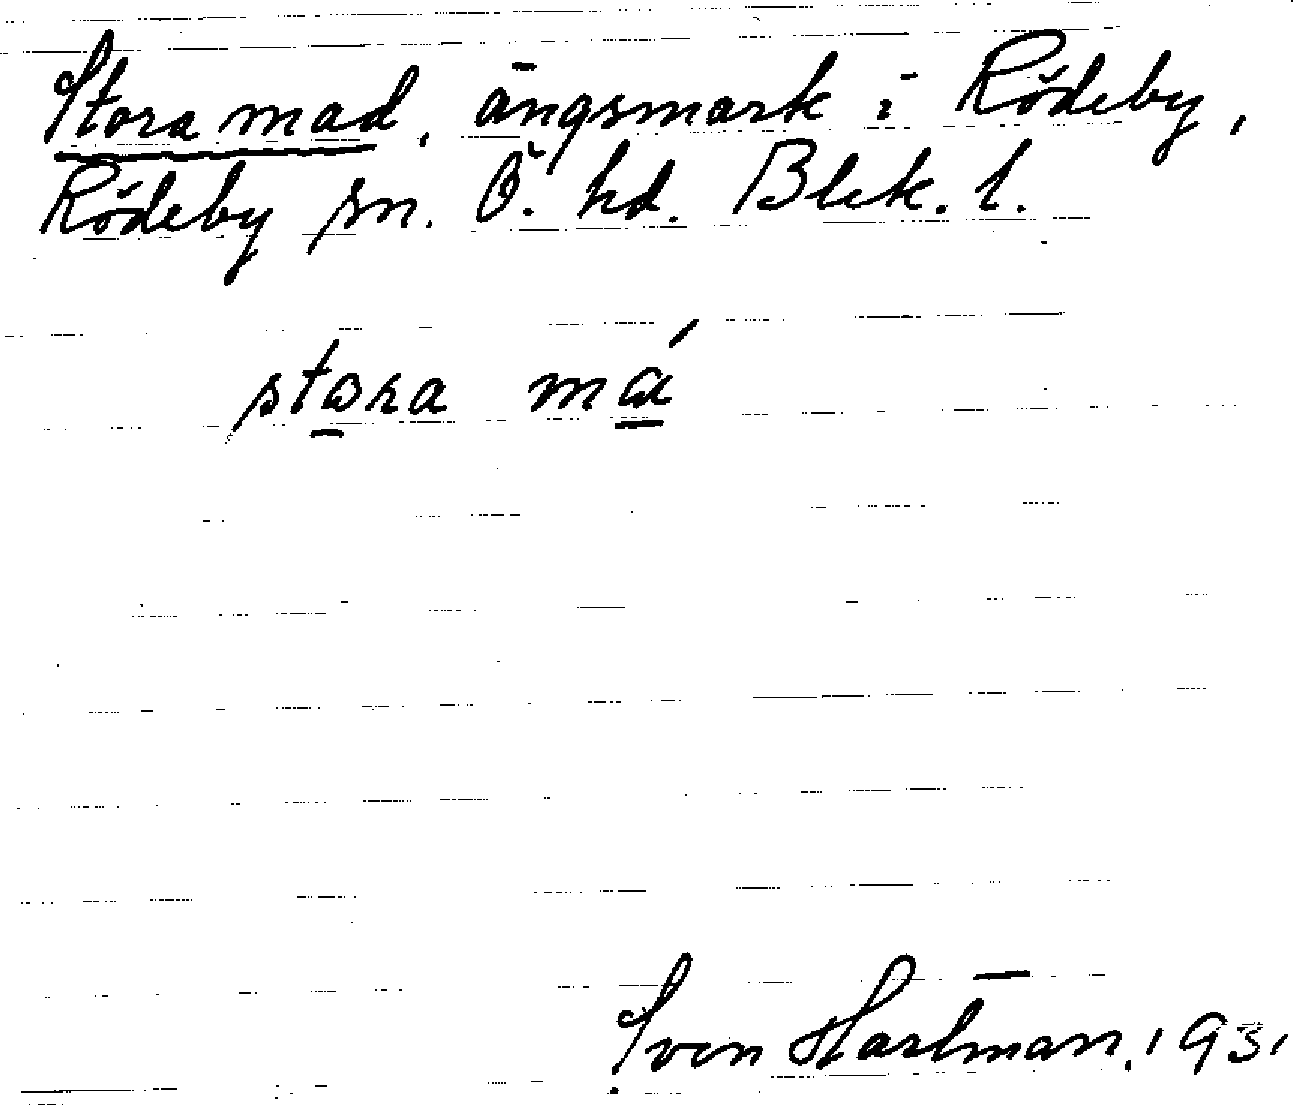 Stora mad, ängsmark i Rödeby,
Rödeby sn. Ö. hd. Blek. l.
stora má
Sven Hartman. 1931